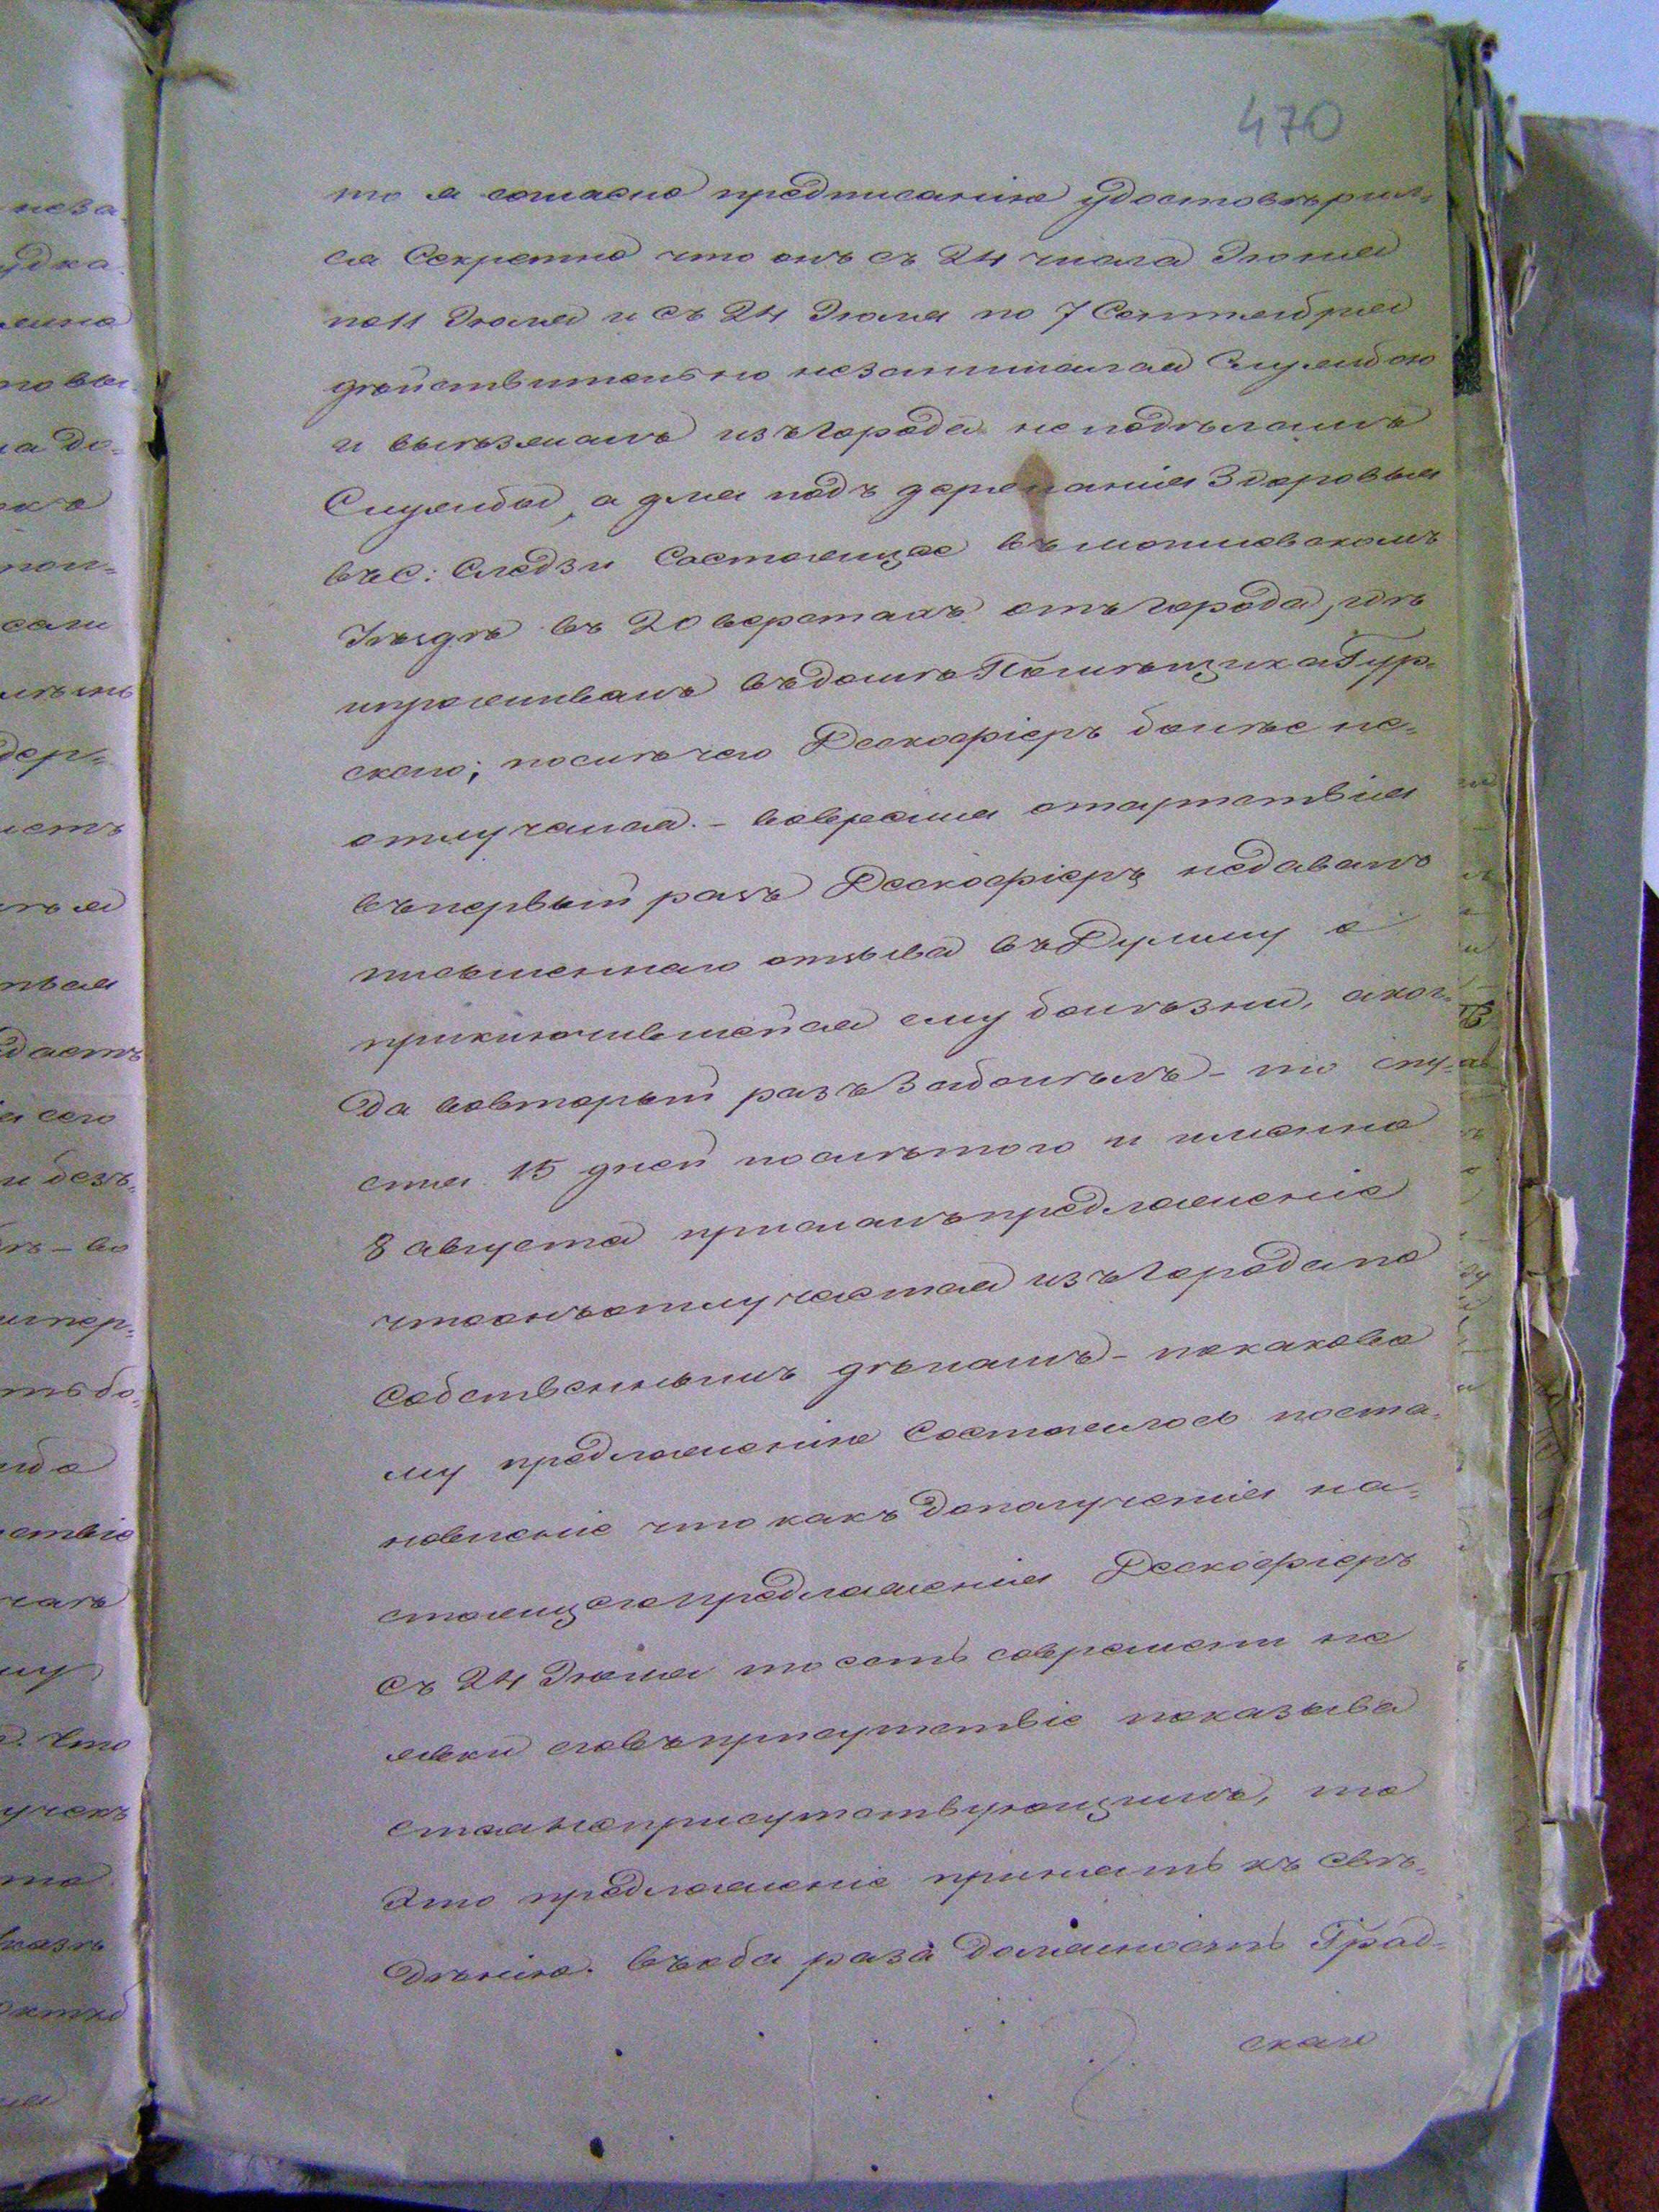 470
то я согласно предписанію удостовѣрил-
ся Секретно что онъ съ 24 числа Іюня
по 11 Іюля и съ 24 Іюля по 7 Сентября
дѣйствительно незанимался Службою
и выѣзжалъ изъ города не по дѣламъ
Службы, а для поддержанія Здоровья
въ с: Следзи Состоящее въ могилевскомъ
Уѣздѣ въ 20 верстахъ отъ города, гдѣ
и проживалъ въ домѣ Помѣщика Гур-
скаго; послѣ чего Дескосфіеръ болѣе не-
отлучался. – вовремя отсутствія
въ первый разъ Дескосфіеръ недавалъ
письменнаго отзыва въ Думу о
приключившейся ему болѣзни, а ког-
да вовторый разъ Заболѣлъ – то спу-
стя 15 дней послѣ того и именно
8 августа прислалъ предложеніе
что онъ отлучается изъ города по
Собственнымъ дѣламъ – покаково
му предложенію Состоялось поста-
новленіе что какъ до получения на-
стоящего предложенія Дескосфіеръ
съ 24 Іюля то есть современи не
явки его въ присутствіе показыва
ется неприсутствующимъ, то
Это предложеніе принять къ свѣ-
дѣнію. Въ оба раза Должность Град-
скаго